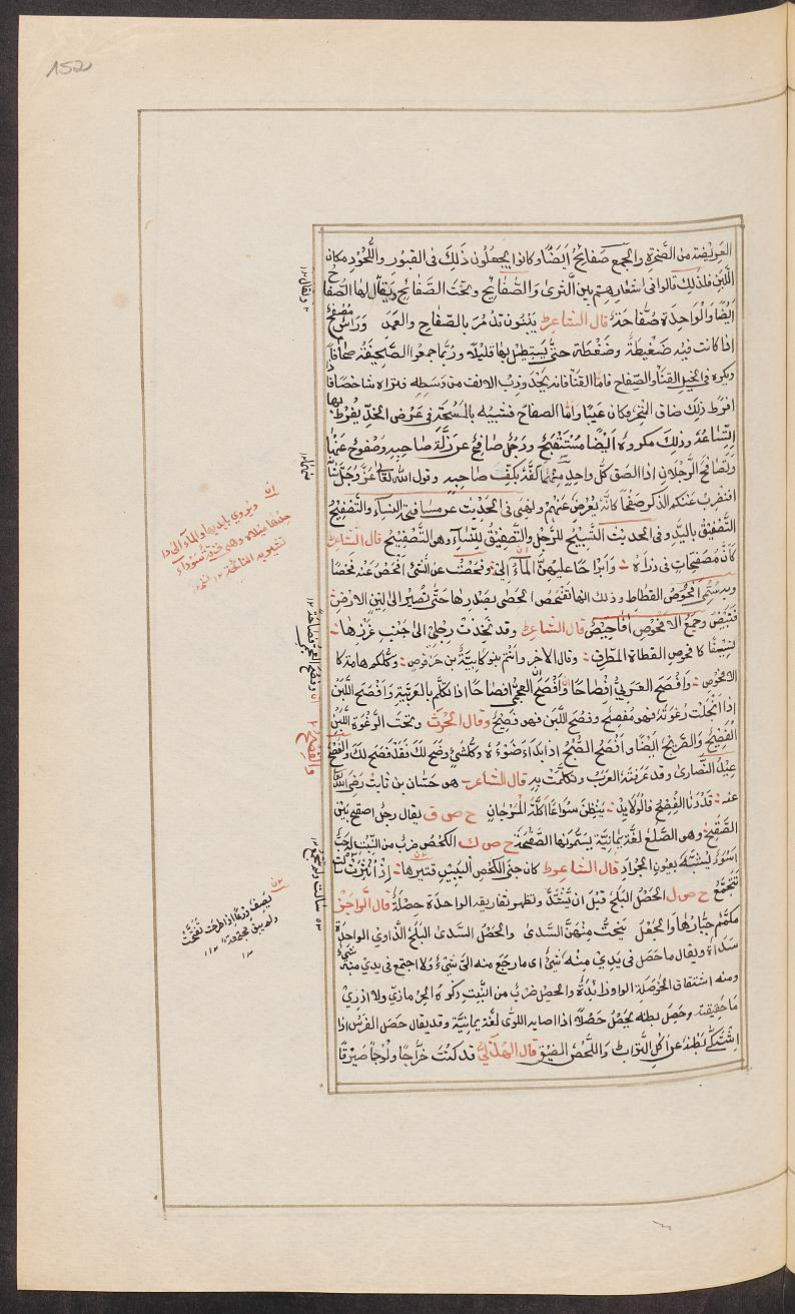 152
العريضة من الصخرة والجمع صفايح ايضا وكانوا يجعلون ذلك فى القبور واللحود مكان
اللبن فلذلك قالوا فى اشعارهم بين الثرى والصفايح وتحت الصفايح ويقال لها الصفاح
ايضا والواحدة صفاحة قال الشاعر يبنون تدمر بالصفاح والعمد وراس مصفح
اذا كانت فيه ضغطة حتى يستطيل بها قليلا وربما جمعوا الصحيفة صحافا
ويكره فى الخيل القنا والصفاح فاما القنا فانه يحدودب الانف من وسطه فتراه شاخصا فاذا
افرط ذلك ضاق المنخر فكان عيبا واما الصفاح فشبيه بالمسحة فى عرض الخد يفرط بها
اتساعه وذلك مكروه ايضا مستقبح ورجل صافح عن زلة صاحبه وصفوح عنها
وتصافح الرجلان اذا الصق كل واحد منهما كفه بكف صاحبه وقول الله تعالى عز وجل ثناؤه
افنضرب عنكم الذكر صفحا كانه يعرض عنهم ونهى فى الحديث عن مصافحة النساء والتصفيح
التصفيق باليد وفى الحديث التسبيح للرجل والتصفيق للنساء وهو التصفيح قال الشاعر
كان مصفحات فى ذراه وانواحا عليهن المآلى وفحصت عن الشئ افحص عنه فحصا
وبه سمى افحوص القطا وذلك انها تفحص الحصى بصدرها حتى تصير الى لين الارض
فتبيض وجمع الافحوص افاحيص قال الشاعر وقد تخذت رجلى الى جنب غرزها
نسيفا كافحوص القطاة المطرق وقال الاخر وانتم بنو كابية بن حرقوص وكلكم هامته كا
لافحوص وافصح العربى افصاحا وافصح العجمى افصاحا اذا تكلم بالعربية وافصح اللبن
اذا انجلت رغوته فهو مفصح وفصح اللبن فهو فصيح وقال وتحت الرغوة اللبن
الفصيح والصريح ايضا وافصح الصبح اذا بدا ضوءه وكل شئ وضح لك فقد فصح لك والفصح
عيد النصارى وقد عربته العرب وتكلمت به قال الشاعر هو حسان بن ثابت رضى الله
عنه قد دنا الفصح فالولايد ينظمن سراعا اكلة المرجان ح ص ق يقال رجل اصقح بين
الصقح وهو الصلع لغة يمانية يسمونها الصقحة ح ص ك الكحص ضرب من النبت له حب
اسود يشبه بعيون الجراد قال الشاعر كان جنى الكحص اليبيس قتيرها اذا نثرت سالت ولم
تتجمع ح ص ل الحصل البلح قبل ان يشتد وتظهر تفاريقه الواحدة حصلة قال الراجز
مكمم جبارها والجعل ينحت منهن السدى والحصل السدى البلح الذاوى الواحدة
سداة ويقال ما حصل فى يدى منه شئ اى ما رجع منه الى شئ ولا اجتمع فى يدى منه شئ
ومنه اشتقاق الحوصلة الواو زائدة والحصل ضرب من النبت ذكره الجرمازى ولا ادرى
ما حقيقته وحصل بطنه يحصل حصلا اذا اصابه اللوى لغة يمانية وقد يقال حصل الفرس اذا
اشتكى بطنه عن اكل التراب واللحص الضيق قال الهذلى قد كنت خراجا ولوجا صيرفا
ويروى بايديها والمآلى